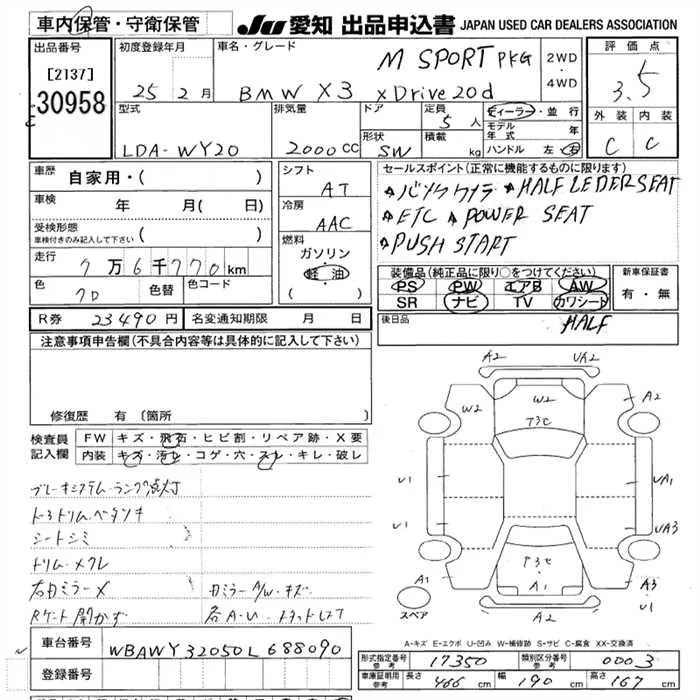 車内保管・守衛保管
JU 愛知 出品申込書 JAPAN USED CAR DEALERS ASSOCIATION
出品番号 初度登録年月 車名・グレード 評価点
[2137] M SPORT PKG 2WD
30958 25 2月 BMW X3 xDrive20d 4WD 3.5
型式 排気量 ドア 定員 ディーラー・並行 外装 内装
5人 モデル年式 年
LDA-WY20 2000cc 形状 SW 積載 kg ハンドル 左 右 C C
車歴 自家用・( ) シフト AT セールスポイント(正常に機能するものに限ります)
車検 年 月( 日) 冷房 AAC HALF LEDER SEAT
受検形態 車検付きのみ記入して下さい ( ) ETC POWER SEAT
走行 7万6千770km 燃料 ガソリン 軽・油 ( ・ ) PUSH START
色 色替 色コード 装備品(純正品に限り○をつけてください) 新車保証書
PS PW エアB AW 有・無
SR ナビ TV カワシート
R券 23490円 名変通知期限 月 日 後日品 HALF
注意事項申告欄(不具合内容等は具体的に記入して下さい)
A2 UA2
W2 W2 A2
T3C
修復歴 有 〔箇所 〕
検査員記入欄 FW キズ・飛石・ヒビ割・リペア跡・X要
内装 キズ・汚レ・コゲ・穴・スレ・キレ・破レ
U1 UA1
ブレーキシステム・ランプ点灯
U1 UA3
シートシミ
T3C
A1 A1 A3
スペア A2
A-キズ E-エクボ U-凹み W-補修跡 S-サビ C-腐食 XX-交換済
車台番号 WBAWY32050L688090
形式指定番号 参考 17350 類別区分番号 参考 0003
登録番号 車庫証明用 参考 長さ 466cm 幅 190cm 高さ 167cm